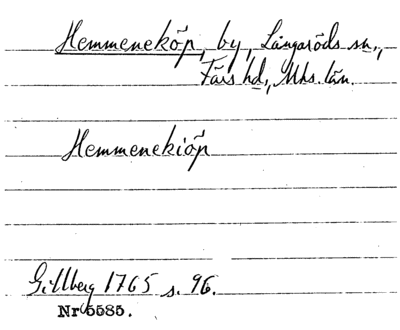 Hemmeneköp, by, Långaröds sn.,
Färs hd., Mhs. län.
Hemmenekiöp
Gillberg 1765 s. 96.
Nr 5585.